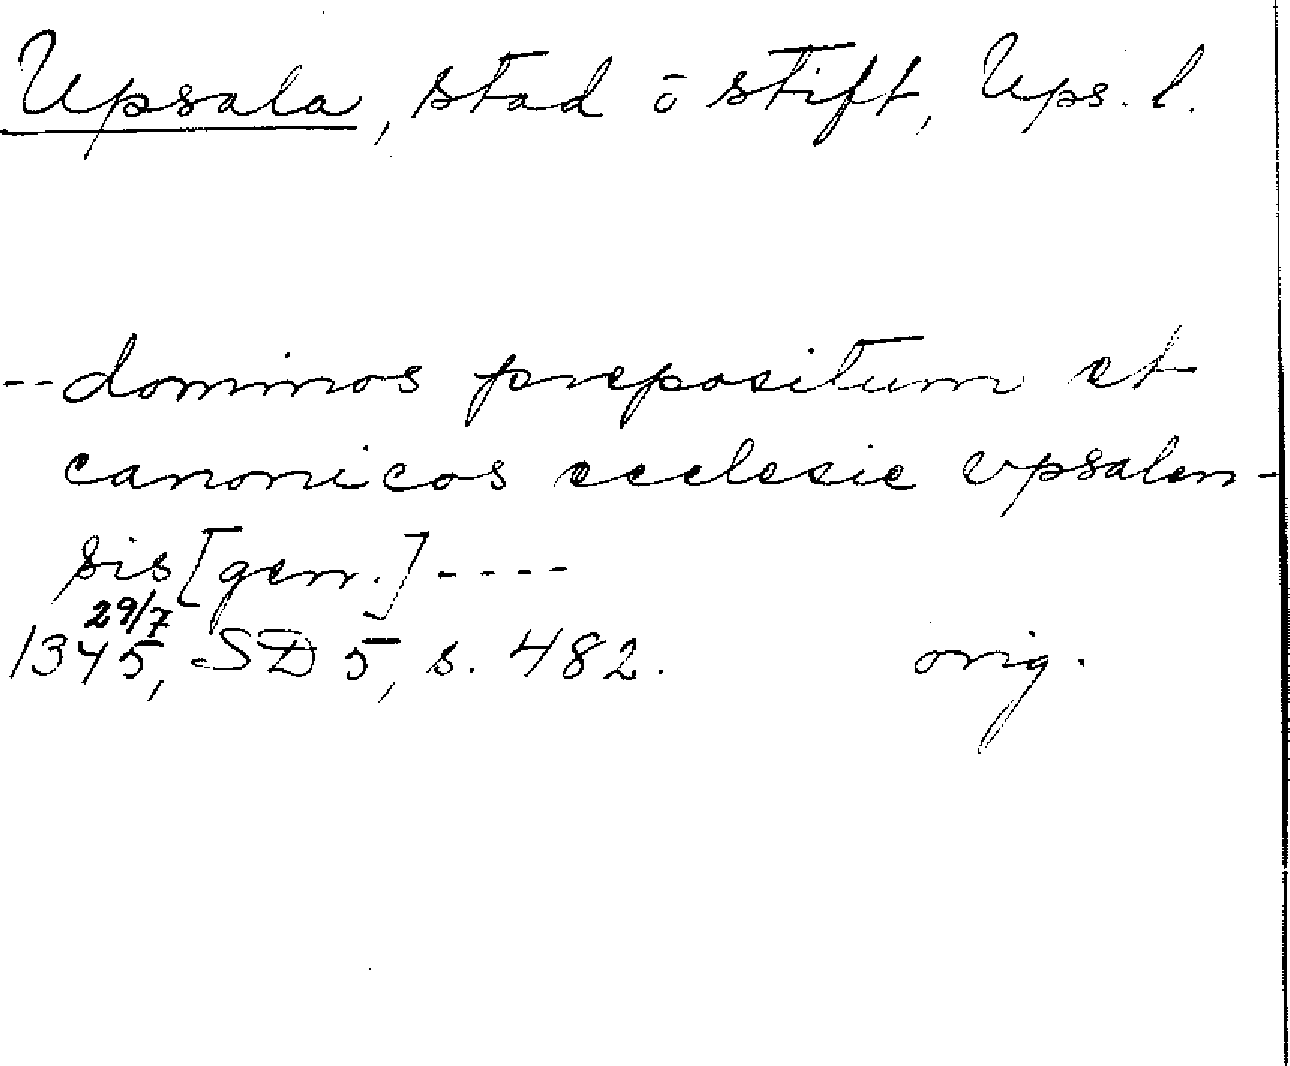 Upsala, stad ō stift, Ups. l.
-- dominos prepositum et
canonicos ecclesie vpsalen-
sis [gen.] ----
29/7
1345, SD 5, s. 482. orig.